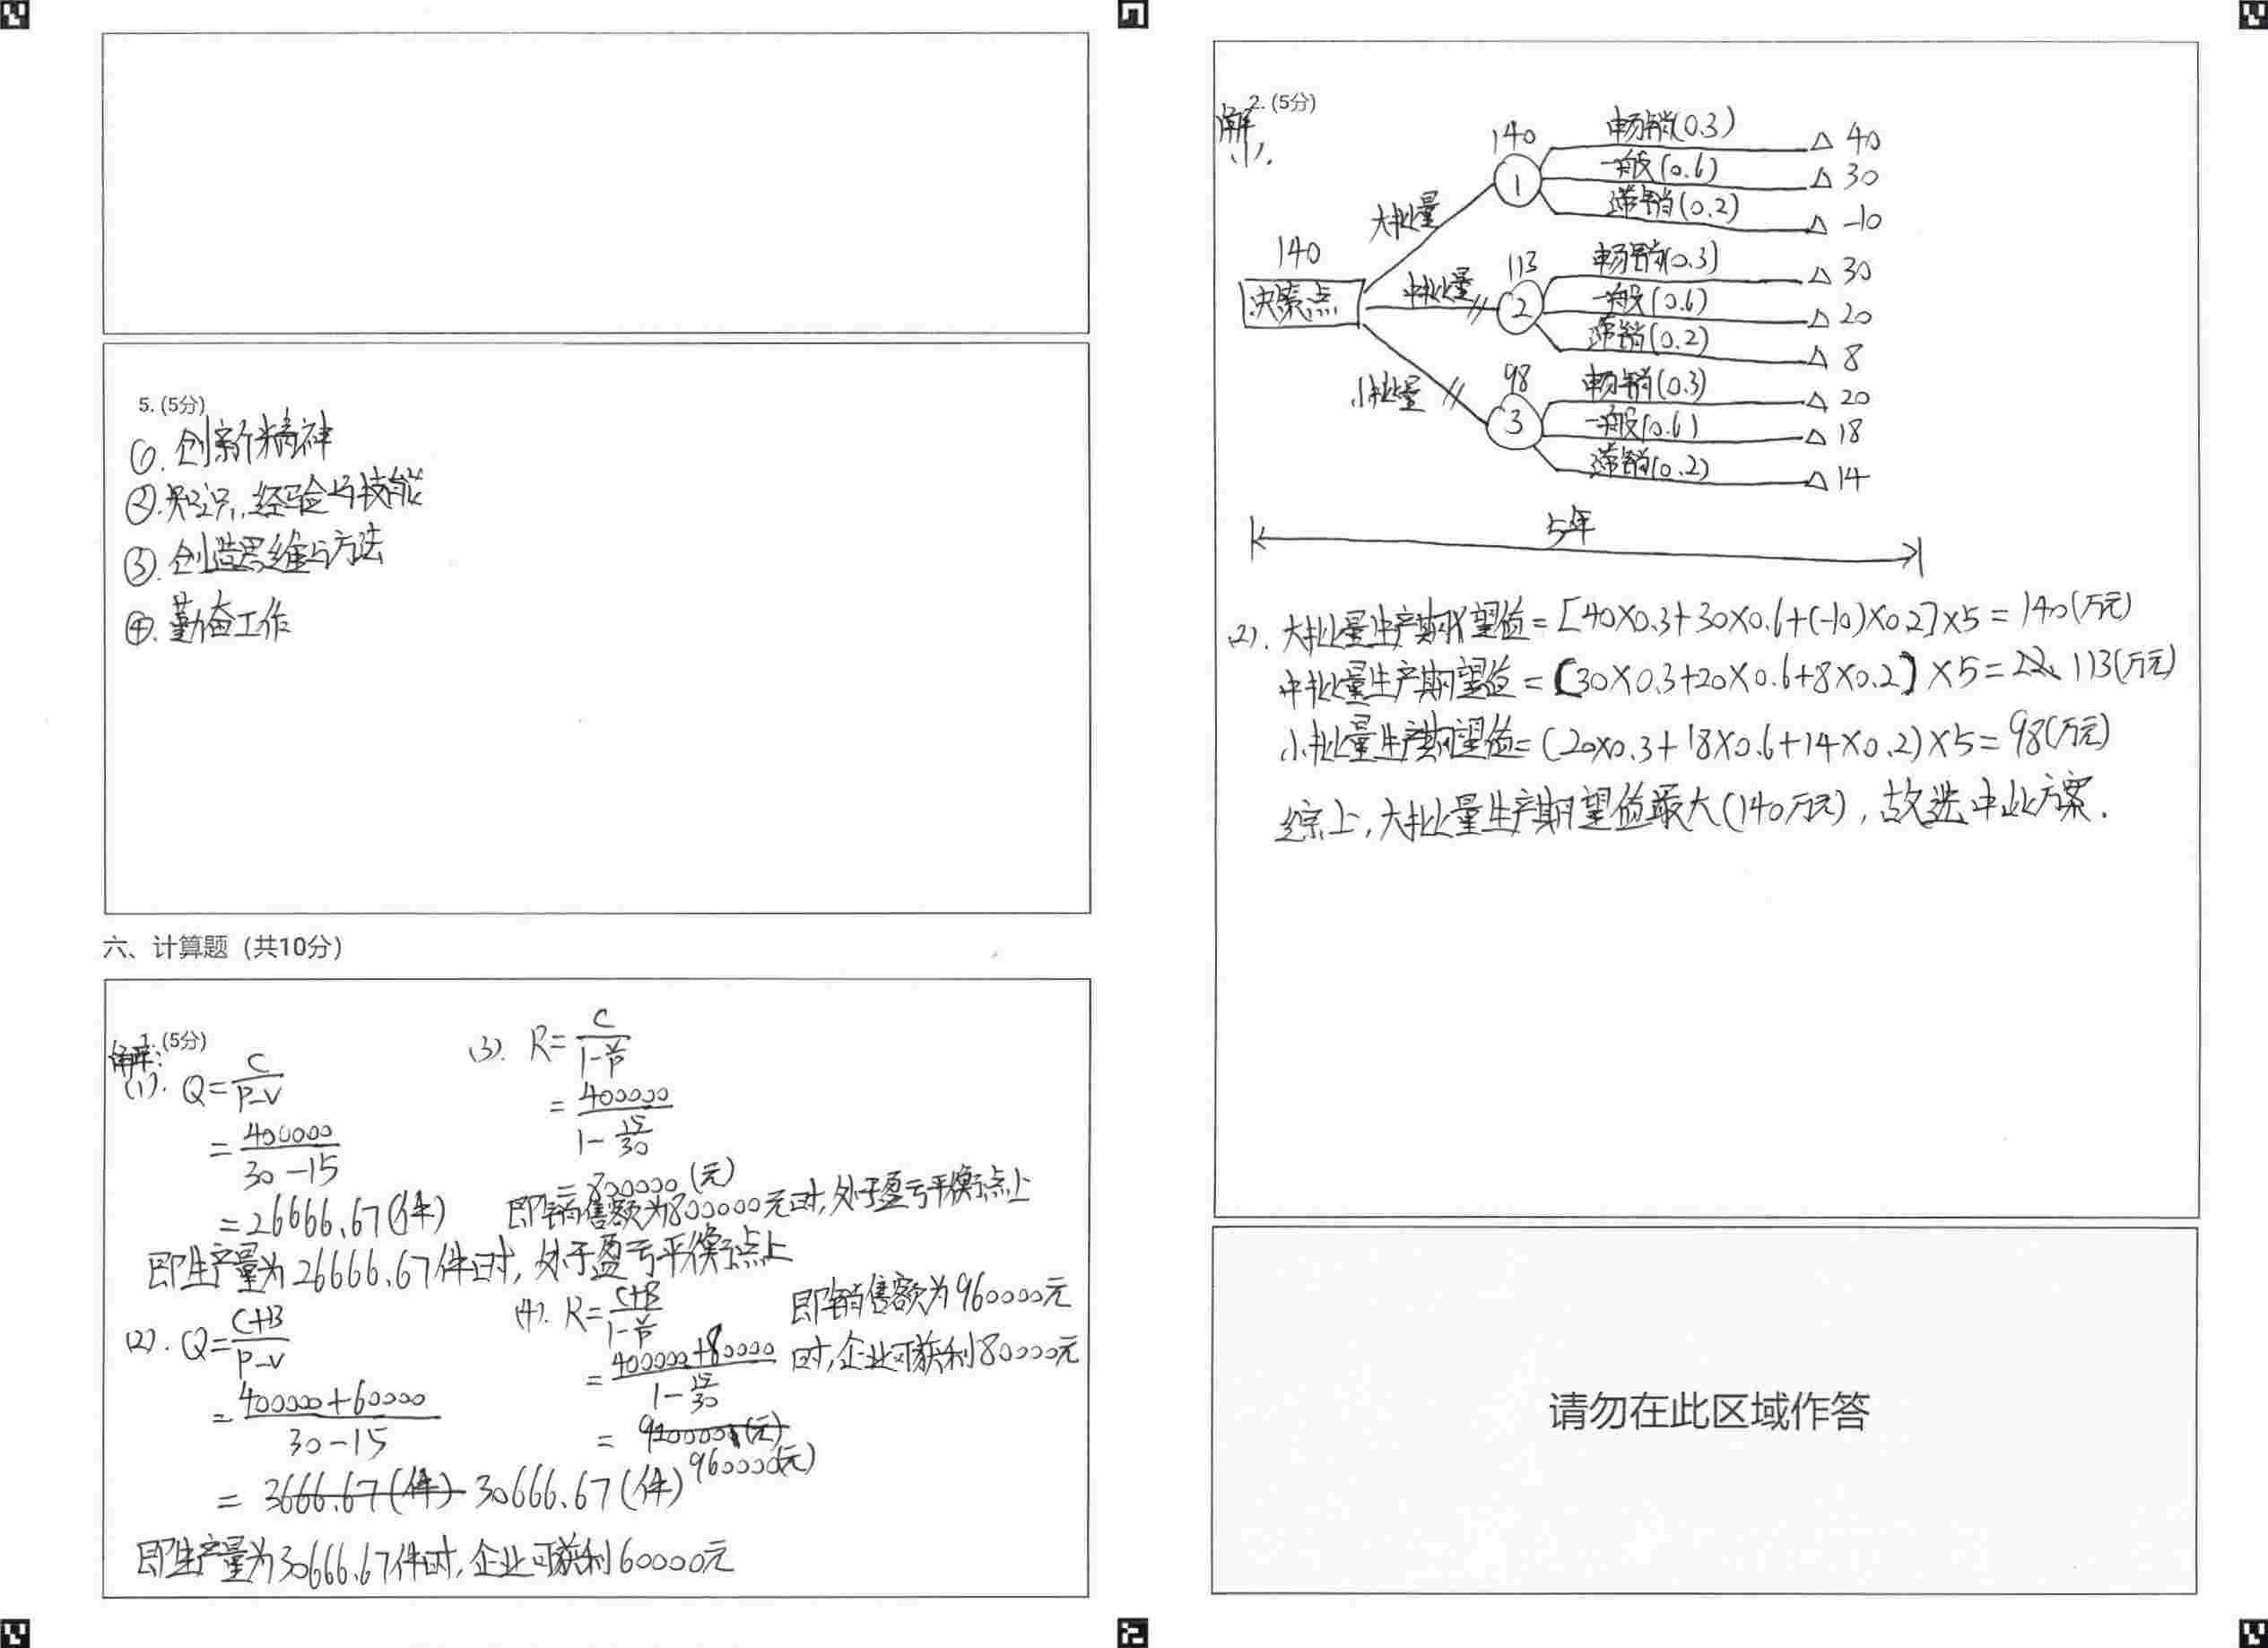 5. (5分)
①. 创新精神
②. 知识, 经验与技能
③. 创造思维与方法
④. 勤奋工作
六、计算题（共10分）
1. (5分)
解:
(1). Q=C/(P-V)
=400000/(30-15)
=26666.67(件)
即生产量为26666.67件时, 处于盈亏平衡点上
(2). Q=(C+B)/(P-V)
=(400000+60000)/(30-15)
= 3666.67(件) 30666.67(件)
即生产量为30666.67件时, 企业可获利60000元
(3). R=C/(1-V/P)
=400000/(1-15/30)
=800000(元)
即销售额为800000元时, 处于盈亏平衡点上
(4). R=(C+B)/(1-V/P)
=(400000+80000)/(1-15/30)
= 920000(元)
960000(元)
即销售额为960000元
时, 企业可获利80000元
2. (5分)
解
(1).
140
决策点
大批量
140
1
畅销(0.3) △ 40
一般(0.6) △ 30
滞销(0.2) △ -10
中批量
113
2
畅销(0.3) △ 30
一般(0.6) △ 20
滞销(0.2) △ 8
小批量
98
3
畅销(0.3) △ 20
一般(0.6) △ 18
滞销(0.2) △ 14
5年
(2). 大批量生产期望值=[40×0.3+30×0.6+(-10)×0.2]×5=140(万元)
中批量生产期望值=[30×0.3+20×0.6+8×0.2]×5=22. 113(万元)
小批量生产期望值=(20×0.3+18×0.6+14×0.2)×5=98(万元)
综上, 大批量生产期望值最大(140万元), 故选中此方案.
请勿在此区域作答